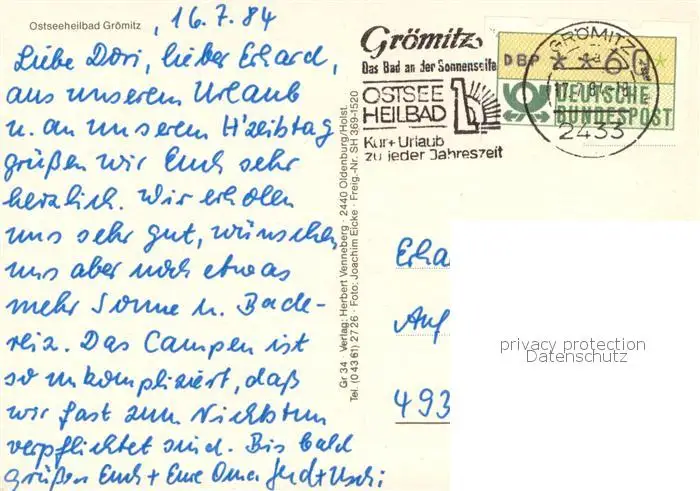 Ostseeheilbad Grömitz
, 16.7.84
Liebe Dori, lieber Erhard,
aus unserem Urlaub
u. an unserem H'zeitstag
grüßen wir Euch sehr
herzlich. Wir erholen
uns sehr gut, wünschen
uns aber noch etwas
mehr Sonne u. Bade-
reiz. Das Campen ist
so unkompliziert, daß
wir fast zum Nichtstun
verpflichtet sind. Bis bald
grüßen Euch + Eure Oma Gerd + Uschi
Gr 34 · Verlag: Herbert Venneberg · 2440 Oldenburg/Holst.
Tel. (0 43 61) 27 26 · Foto: Joachim Eicke · Freig.-Nr. SH 369-1520
Grömitz
Das Bad an der Sonnenseite
OSTSEE
HEILBAD
Kur + Urlaub
zu jeder Jahreszeit
GRÖMITZ
2433
DBP
DEUTSCHE
BUNDESPOST
Erha
Auf
493
privacy protection
Datenschutz